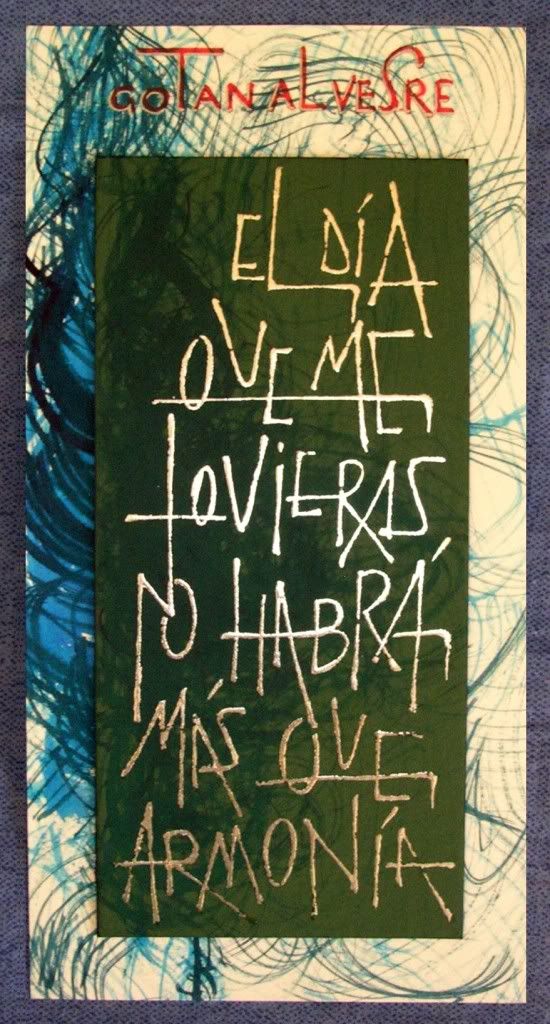 GOTAN AL VESRE
EL DÍA
QVE ME
QVIERAS
NO HABRÁ
MÁS QVE
ARMONÍA